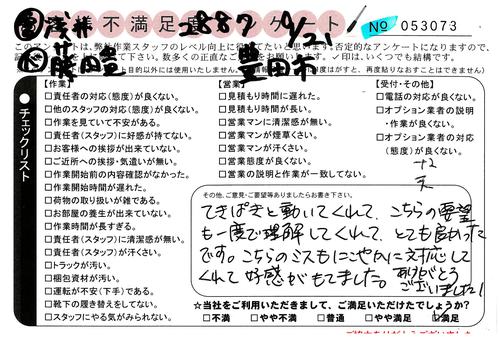 浅井 2887 9/21
お客様不満足度アンケート
No 053073
藤田 豊田市
チェックリスト
【作業】
□責任者の対応(態度)が良くない。
□他のスタッフの対応(態度)が良くない。
□作業を見ていて不安がある。
□責任者(スタッフ)に好感が持てない。
□お客様への挨拶が出来ていない。
□ご近所への挨拶・気遣いが無い。
□作業開始前の内容確認がなかった。
□作業開始時間が遅れた。
□荷物の取り扱いが雑である。
□お部屋の養生が出来ていない。
□作業時間が長すぎる。
□責任者(スタッフ)に清潔感が無い。
□責任者(スタッフ)が汗くさい。
□トラックが汚い。
□梱包資材が汚い。
□運転が不安(下手)である。
□靴下の履き替えをしてない。
□スタッフにやる気がみられない。
【営業】
□見積もり時間に遅れた。
□見積もり時間が長い。
□営業マンに清潔感が無い。
□営業マンが煙草くさい。
□営業マンが汗くさい。
□営業態度が良くない。
□営業の説明と作業が一致してない。
【受付・その他】
□電話の対応が良くない。
□オプション業者の説明・作業が良くない。
□オプション業者の対応(態度)が良くない。
その他、ご意見・ご要望等ありましたらお書き下さい。
てきぱきと動いてくれて、こちらの要望
も一度で理解してくれて、とても良かった
です。こちらのミスもにこやかに対応して
くれて好感がもてました。ありがとう
ございました!
☆当社をご利用いただきまして、ご満足いただけたでしょうか?
□不満 □やや不満 □普通 □やや満足 □満足